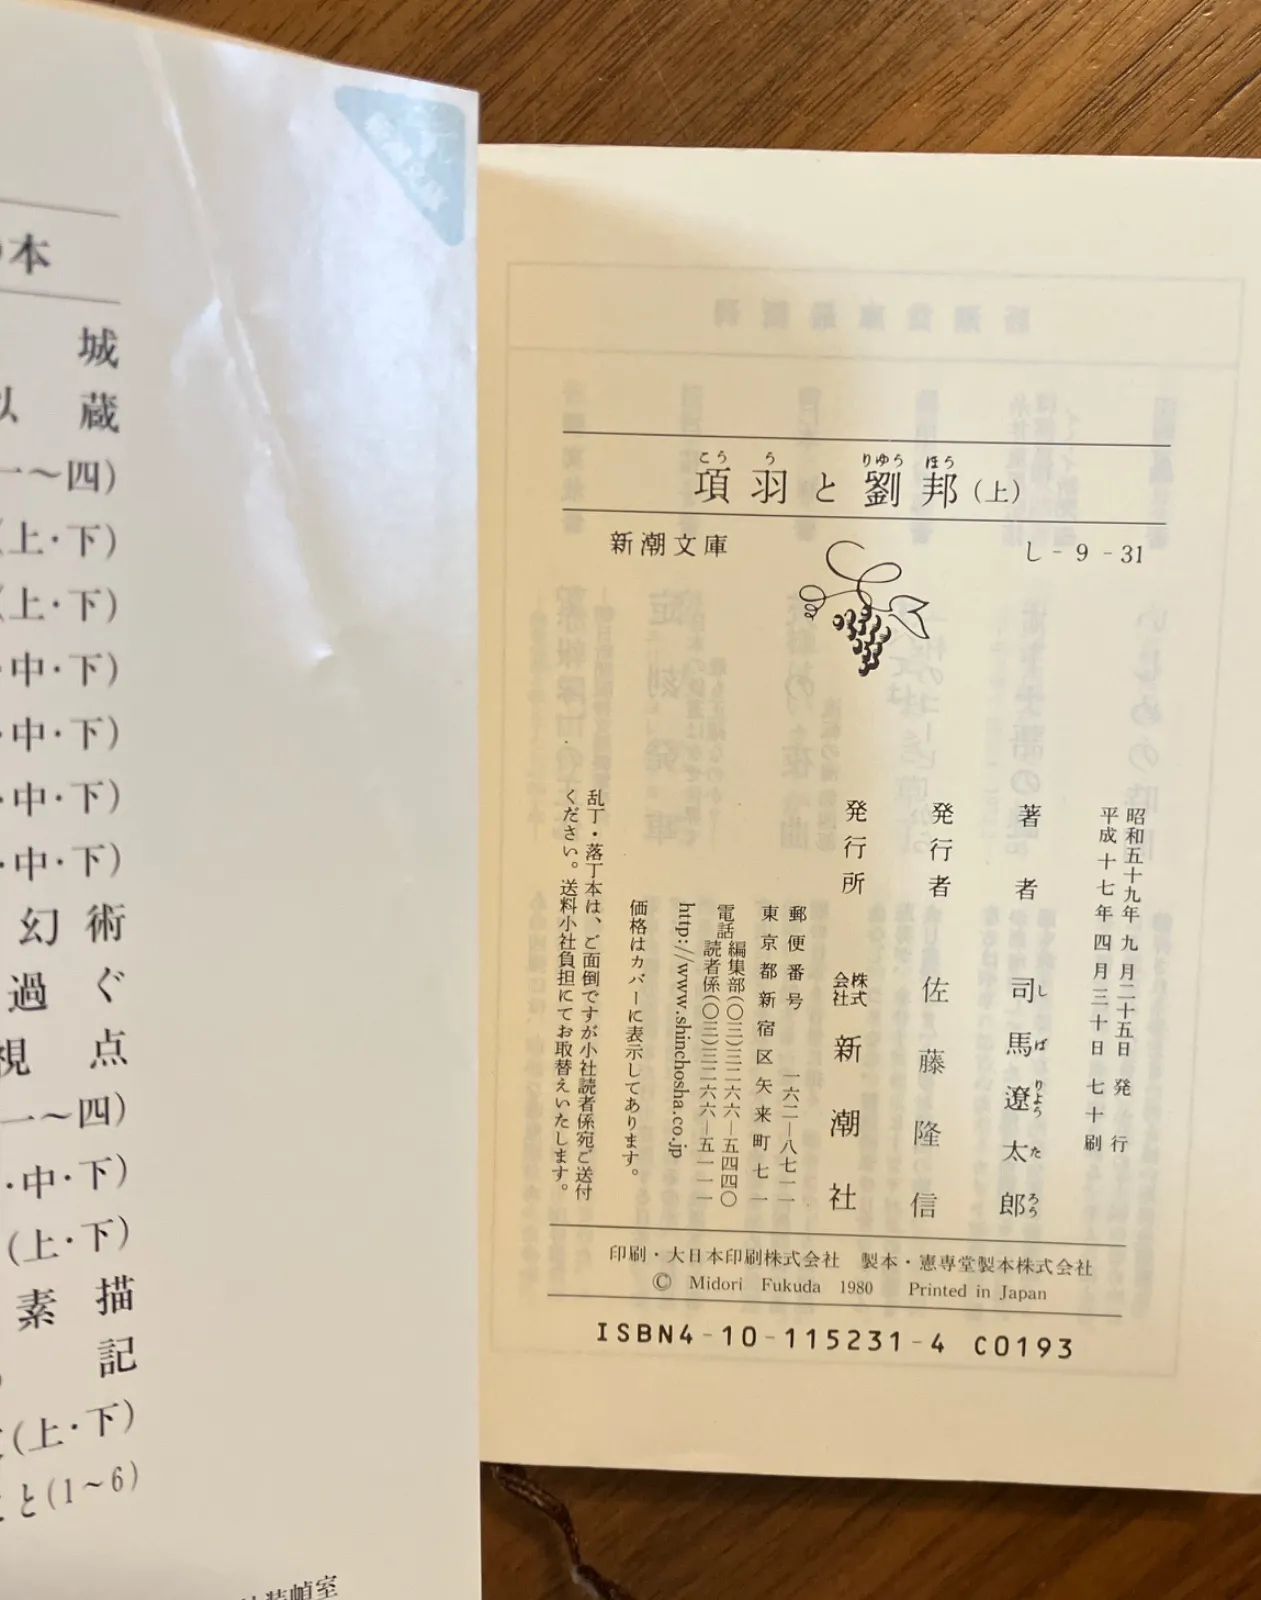 本
城
蔵
一～四)
(上・下)
(上・下)
・中・下)
・中・下)
・中・下)
・中・下)
幻術
過ぐ
視点
一～四)
・中・下)
(上・下)
素描
記
(上・下)
こと(1～6)
装幀室
こう う りゆう ほう
項羽と劉邦(上)
新潮文庫 し-9-31
昭和五十九年九月二十五日 発行
平成十七年四月三十日 七十刷
著者 司馬遼太郎
しばりようたろう
発行者 佐藤隆信
発行所 株式会社 新潮社
郵便番号 一六二―八七一一
東京都新宿区矢来町七一
電話 編集部(〇三)三二六六―五四四〇
読者係(〇三)三二六六―五一一一
http://www.shinchosha.co.jp
価格はカバーに表示してあります。
乱丁・落丁本は、ご面倒ですが小社読者係宛ご送付
ください。送料小社負担にてお取替えいたします。
印刷・大日本印刷株式会社 製本・憲専堂製本株式会社
© Midori Fukuda 1980 Printed in Japan
ISBN4-10-115231-4 C0193